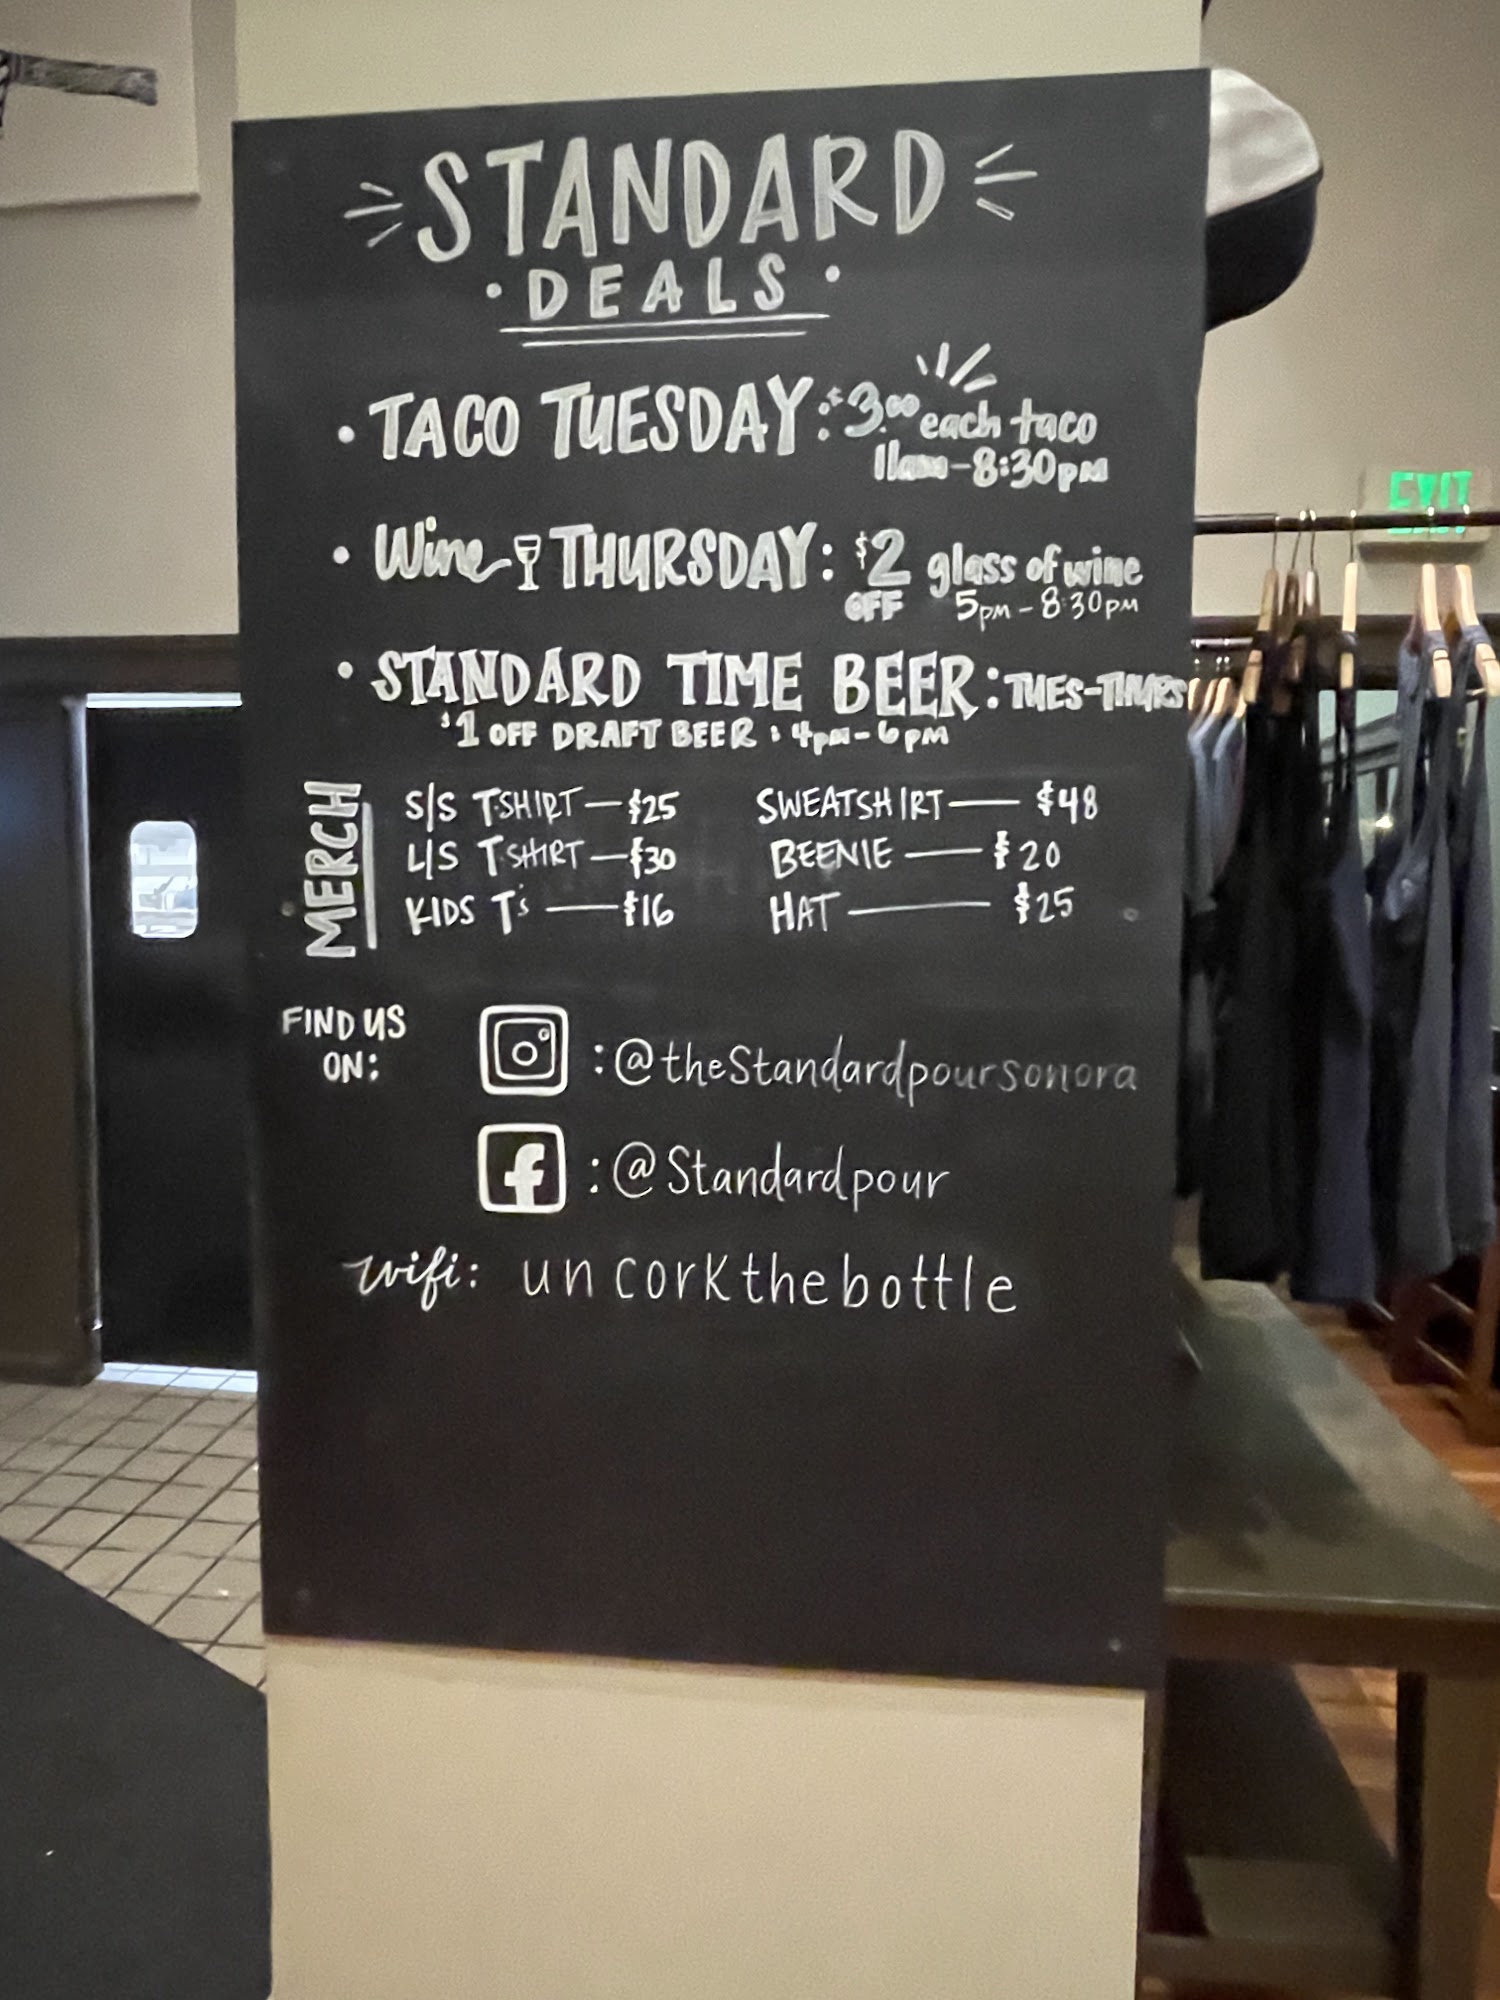 STANDARD
• DEALS •
• TACO TUESDAY: $3.00 each taco
11am-8:30pm
• Wine THURSDAY: $2 OFF glass of wine
5pm-8:30pm
• STANDARD TIME BEER: TUES-THURS
$1 OFF DRAFT BEER: 4pm-6pm
MERCH
S/S T-SHIRT — $25 SWEATSHIRT — $48
L/S T-SHIRT — $30 BEENIE — $20
KIDS T's — $16 HAT — $25
FIND US
ON:
:@theStandardpoursonora
:@Standardpour
wifi: uncorkthebottle
EXIT